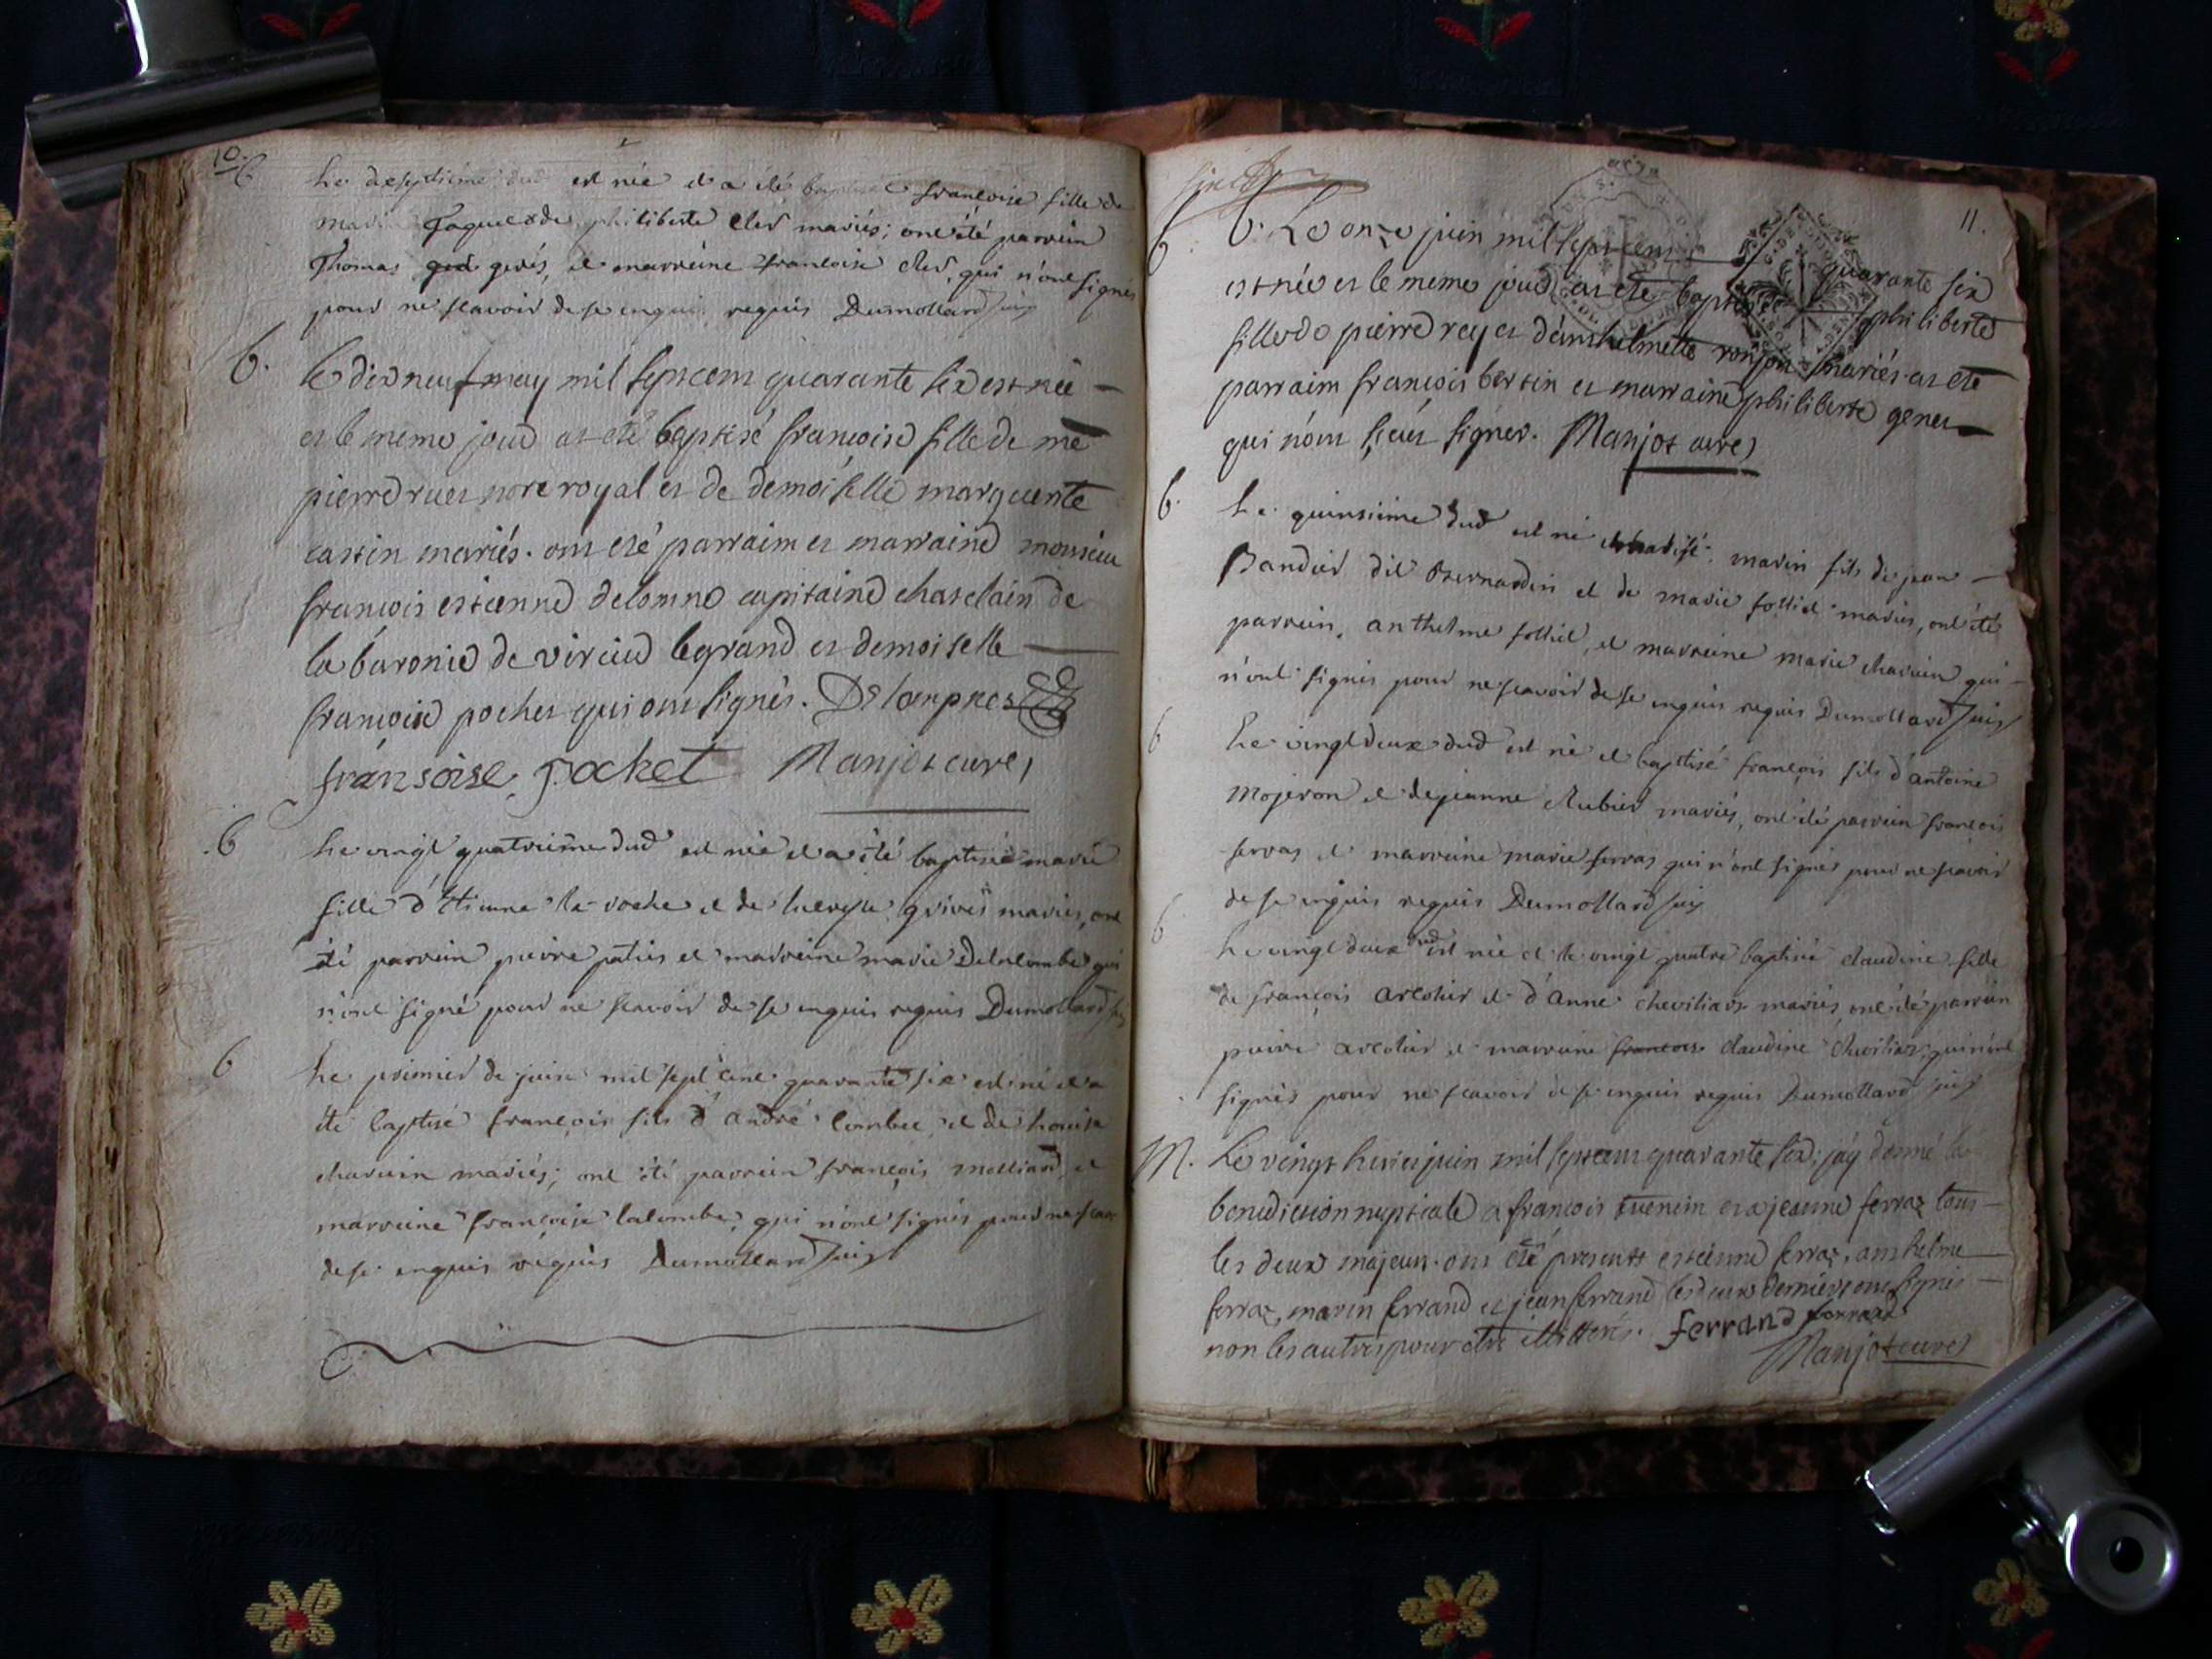 10.
b Le dixseptième dud est née et a été baptisée francoise fille de
Jaquet et de philiberte Clerd mariés; ont été parrein
Thomas ged gerès, et marreine francoise Clerd, qui n'ont signés
pour ne scavoir de ce enquis requis Dumollard vic
b. le dix neuf may mil sept cent quarante six est née
et le meme jour at eté baptisé francoise fille de me
pierre ruet nore royal et de demoiselle marguerite
cartin mariés. ont eté parraim et marraine monsieur
francois estienne delompne capitaine chastelain de
la baronie de virieu le grand et demoiselle
francoise pochet qui ont signés. Delompnes
fransoise pochet Manjot curé
b Le vingt quatrième dud est née et a été baptisée marie
fille d'Etienne la roche et de mariés, ont
été parrein pierre patier et marreine marie Delalombe qui
n'ont signé pour ne scavoir de ce enquis requis Dumollard vic
b Le premier de juin mil sept cent quarante six est né et a
été baptisé françois fils d'andré lombet et de Louise
charvin mariés; ont été parrein françois molliard, et
marreine françoise lalombe, qui n'ont signés pour ne scav
de ce enquis requis Dumollard vic
11.
b b. Le onze juin mil sept cent quarante six
est née et le meme jour at eté baptisée philiberte
fille de pierre rey et d'anthelmette ronjon mariés. at eté
parraim françois bertin et marraine philiberte genet
qui n'ont sceut signer. Manjot curé
b. Le quinsième dud est né et batisé marin fils de jean
Bandier dit Bernardin et de marie follié mariés, ont été
parrein anthelme follié, et marreine marie charvin qui
n'ont signés pour ne scavoir de ce enquis requis Dumollard vic
b Le vingt deux dud est né et baptisé françois fils d'antoine
Mojeron et de jeanne Aubier mariés, ont été parrein françois
ferras et marreine marie ferras qui n'ont signés pour ne scavoir
de ce enquis requis Dumollard vic
b Le vingt deux dud est née et le vingt quatre baptisée claudine fille
de françois arcolier et d'Anne chevilliar mariés, ont été parrein
pierre arcolier et marreine francois claudine chevilliar, qui n'ont
signés pour ne scavoir de ce enquis requis Dumollard vic
M. Le vingt huit juin mil sept cent quarante six; j'ay donné la
benediction nuptiale a françois tuenim et a jeanne ferraz tous
les deux majeurs. ont été present estienne ferraz, anthelme
ferraz, marin ferrand et jean ferrand les deux derniers ont signés
non les autres pour etre illitterés. ferrand ferrand
Manjot curé